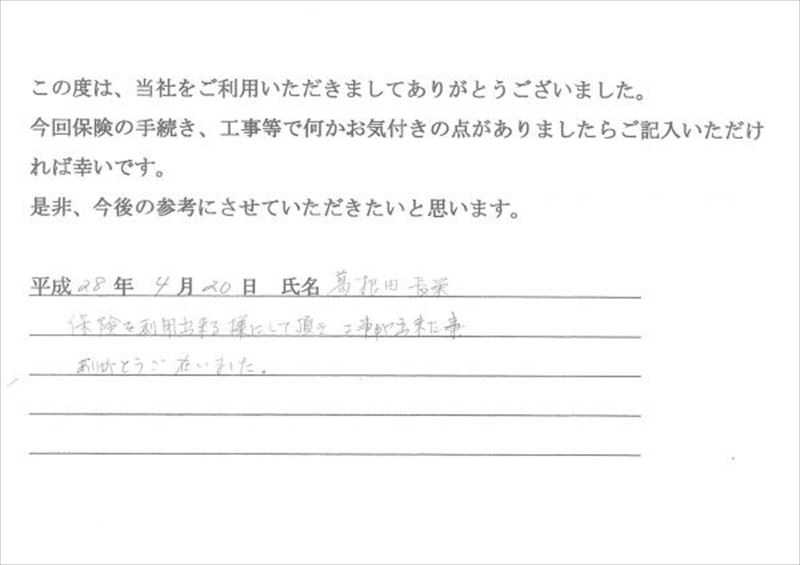 この度は、当社をご利用いただきましてありがとうございました。
今回保険の手続き、工事等で何かお気付きの点がありましたらご記入いただけ
れば幸いです。
是非、今後の参考にさせていただきたいと思います。
平成 28 年 4 月 20 日 氏名 葛根田 長栄
保険を利用出来る様にして頂き 工事が出来た事
ありがとうご在いました。